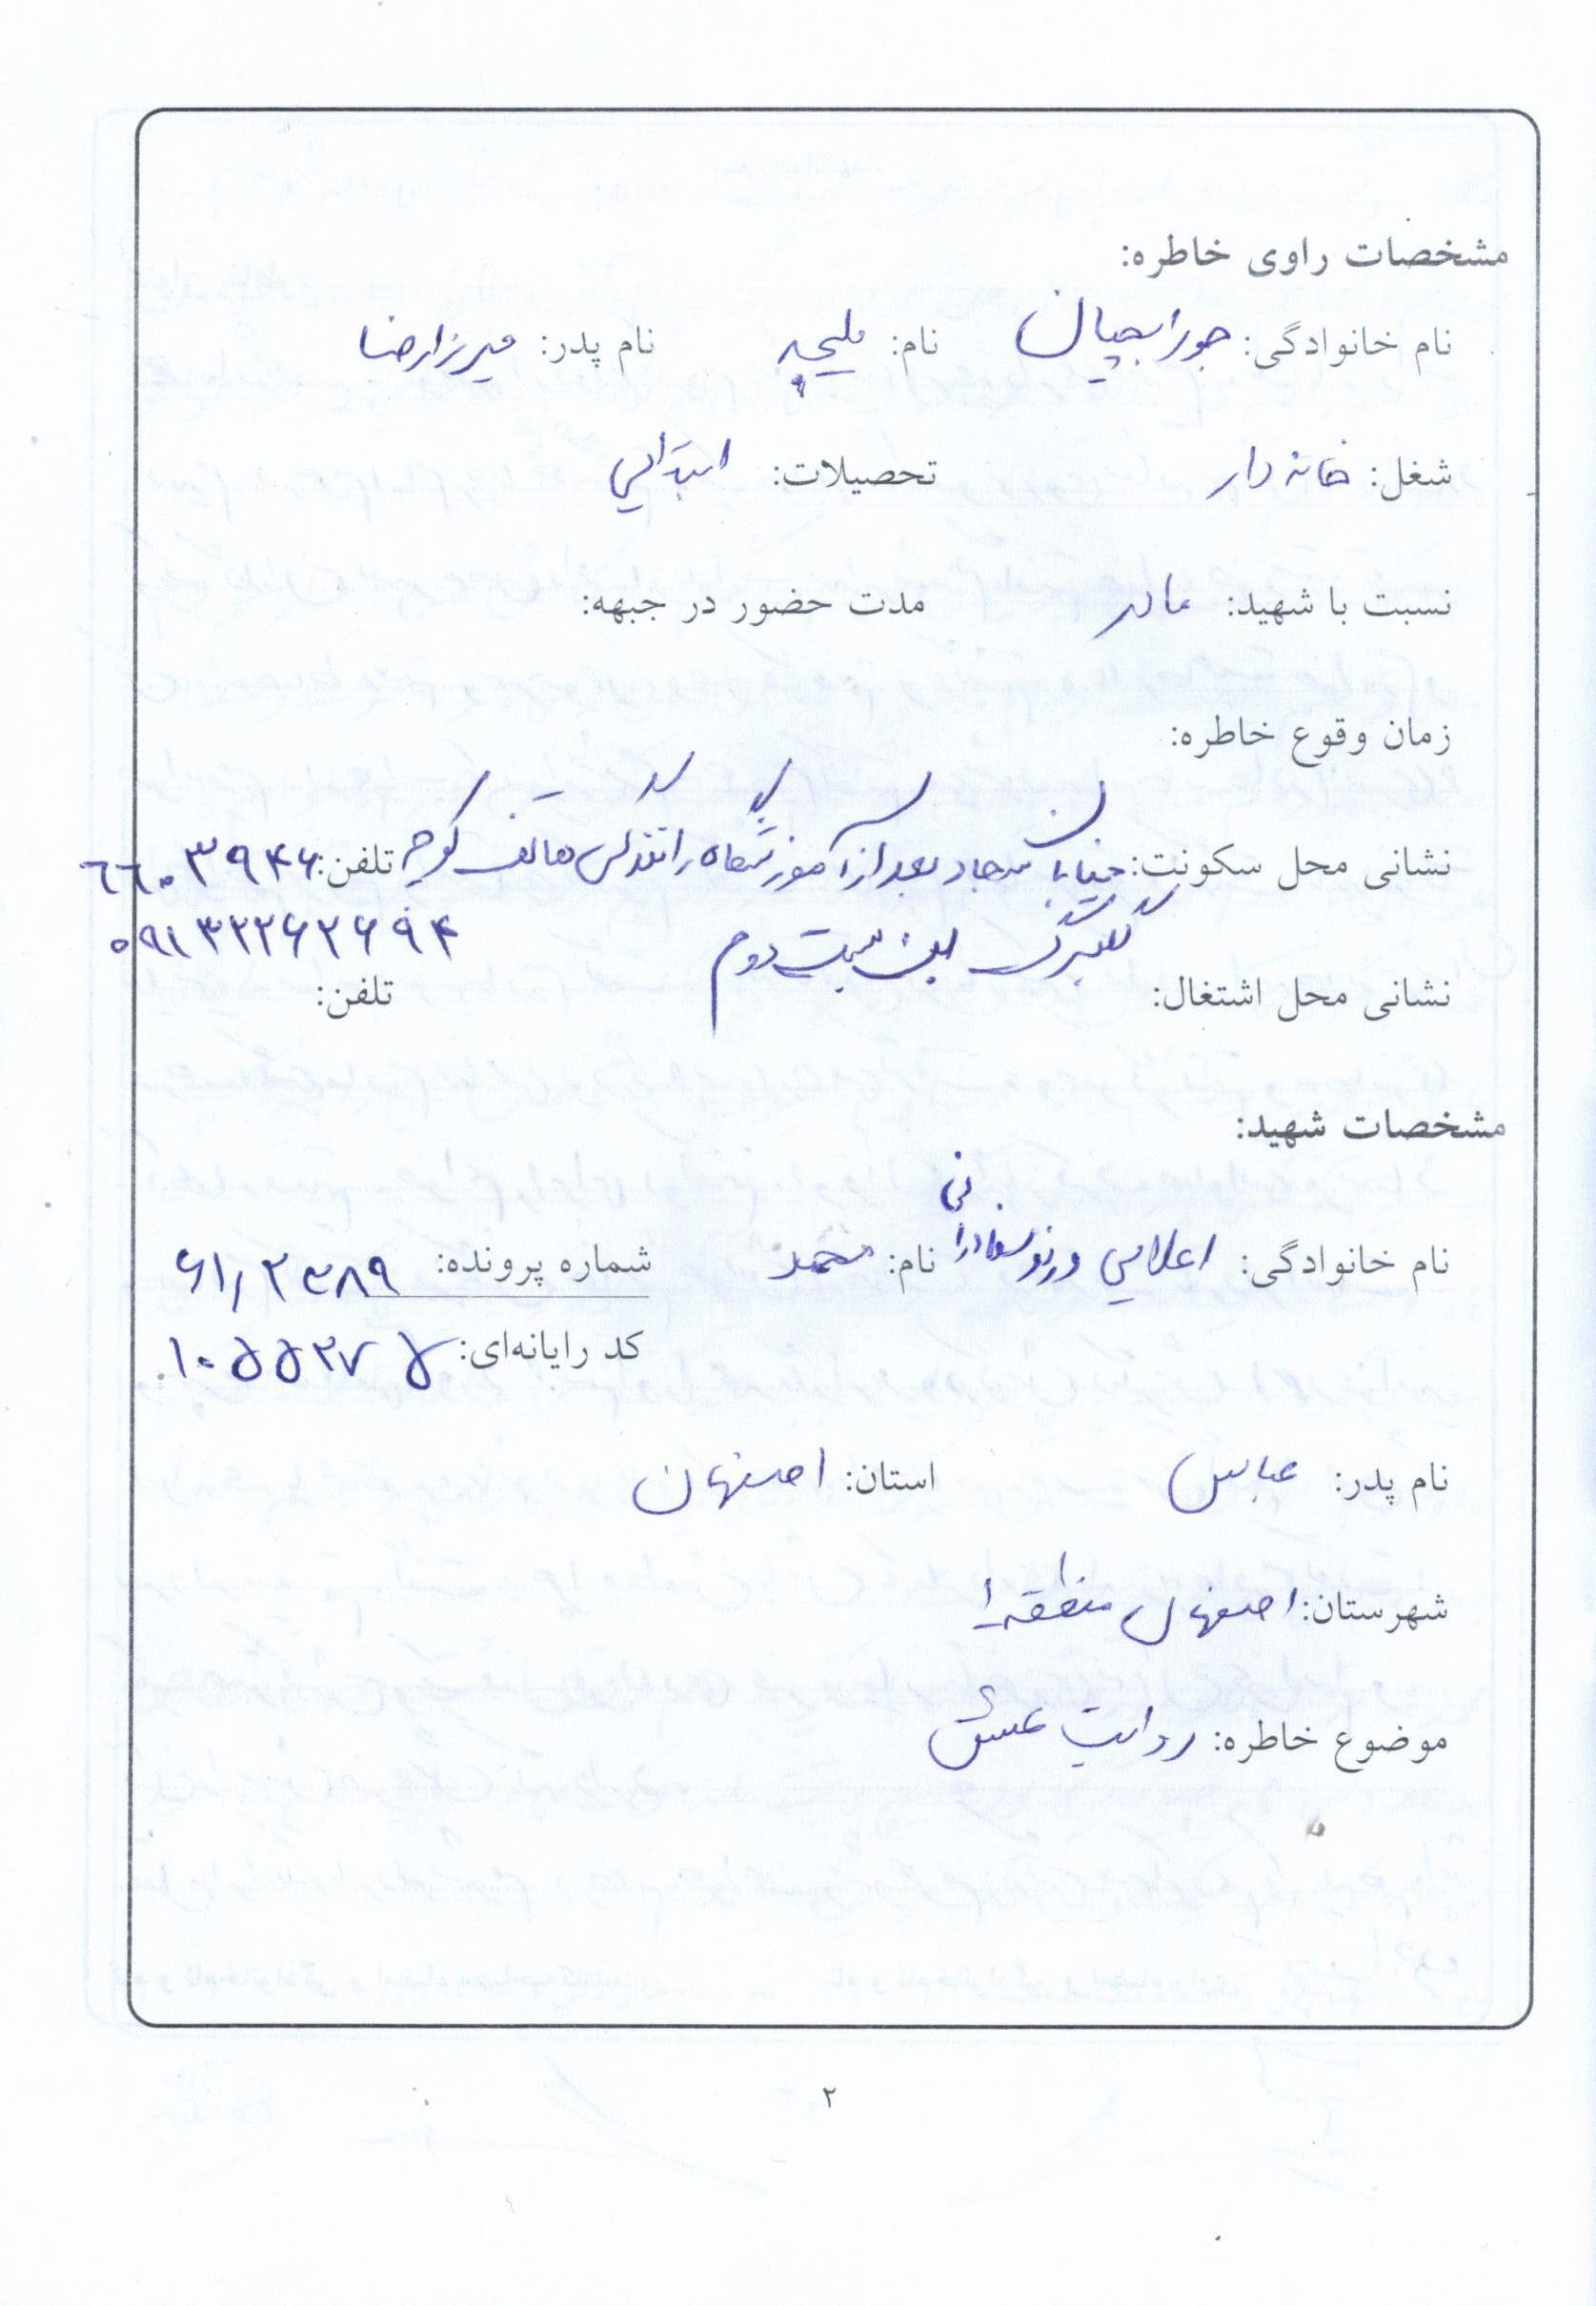 مشخصات راوی خاطره:
نام خانوادگی: جورابچیان نام: ملیحه نام پدر: میرزارضا
شغل: خانه دار تحصیلات: ابتدایی
نسبت با شهید: مادر مدت حضور در جبهه:
زمان وقوع خاطره:
نشانی محل سکونت: خیابان سجاد بعد از آموزشگاه رانندگی هاتف کوچه تلفن: ۶۶۰۳۹۴۶
گلبرگ بن بست دوم ۰۹۱۳۲۲۶۲۶۹۴
نشانی محل اشتغال: تلفن:
مشخصات شهید:
نام خانوادگی: اعلایی ورنوسفادرانی نام: محمد شماره پرونده: ۶۱/۲۳۸۹
کد رایانه‌ای: ۱۰۵۵۲۷۵
نام پدر: عباس استان: اصفهان
شهرستان: اصفهان منطقه ۱
موضوع خاطره: روایت عشق
۲